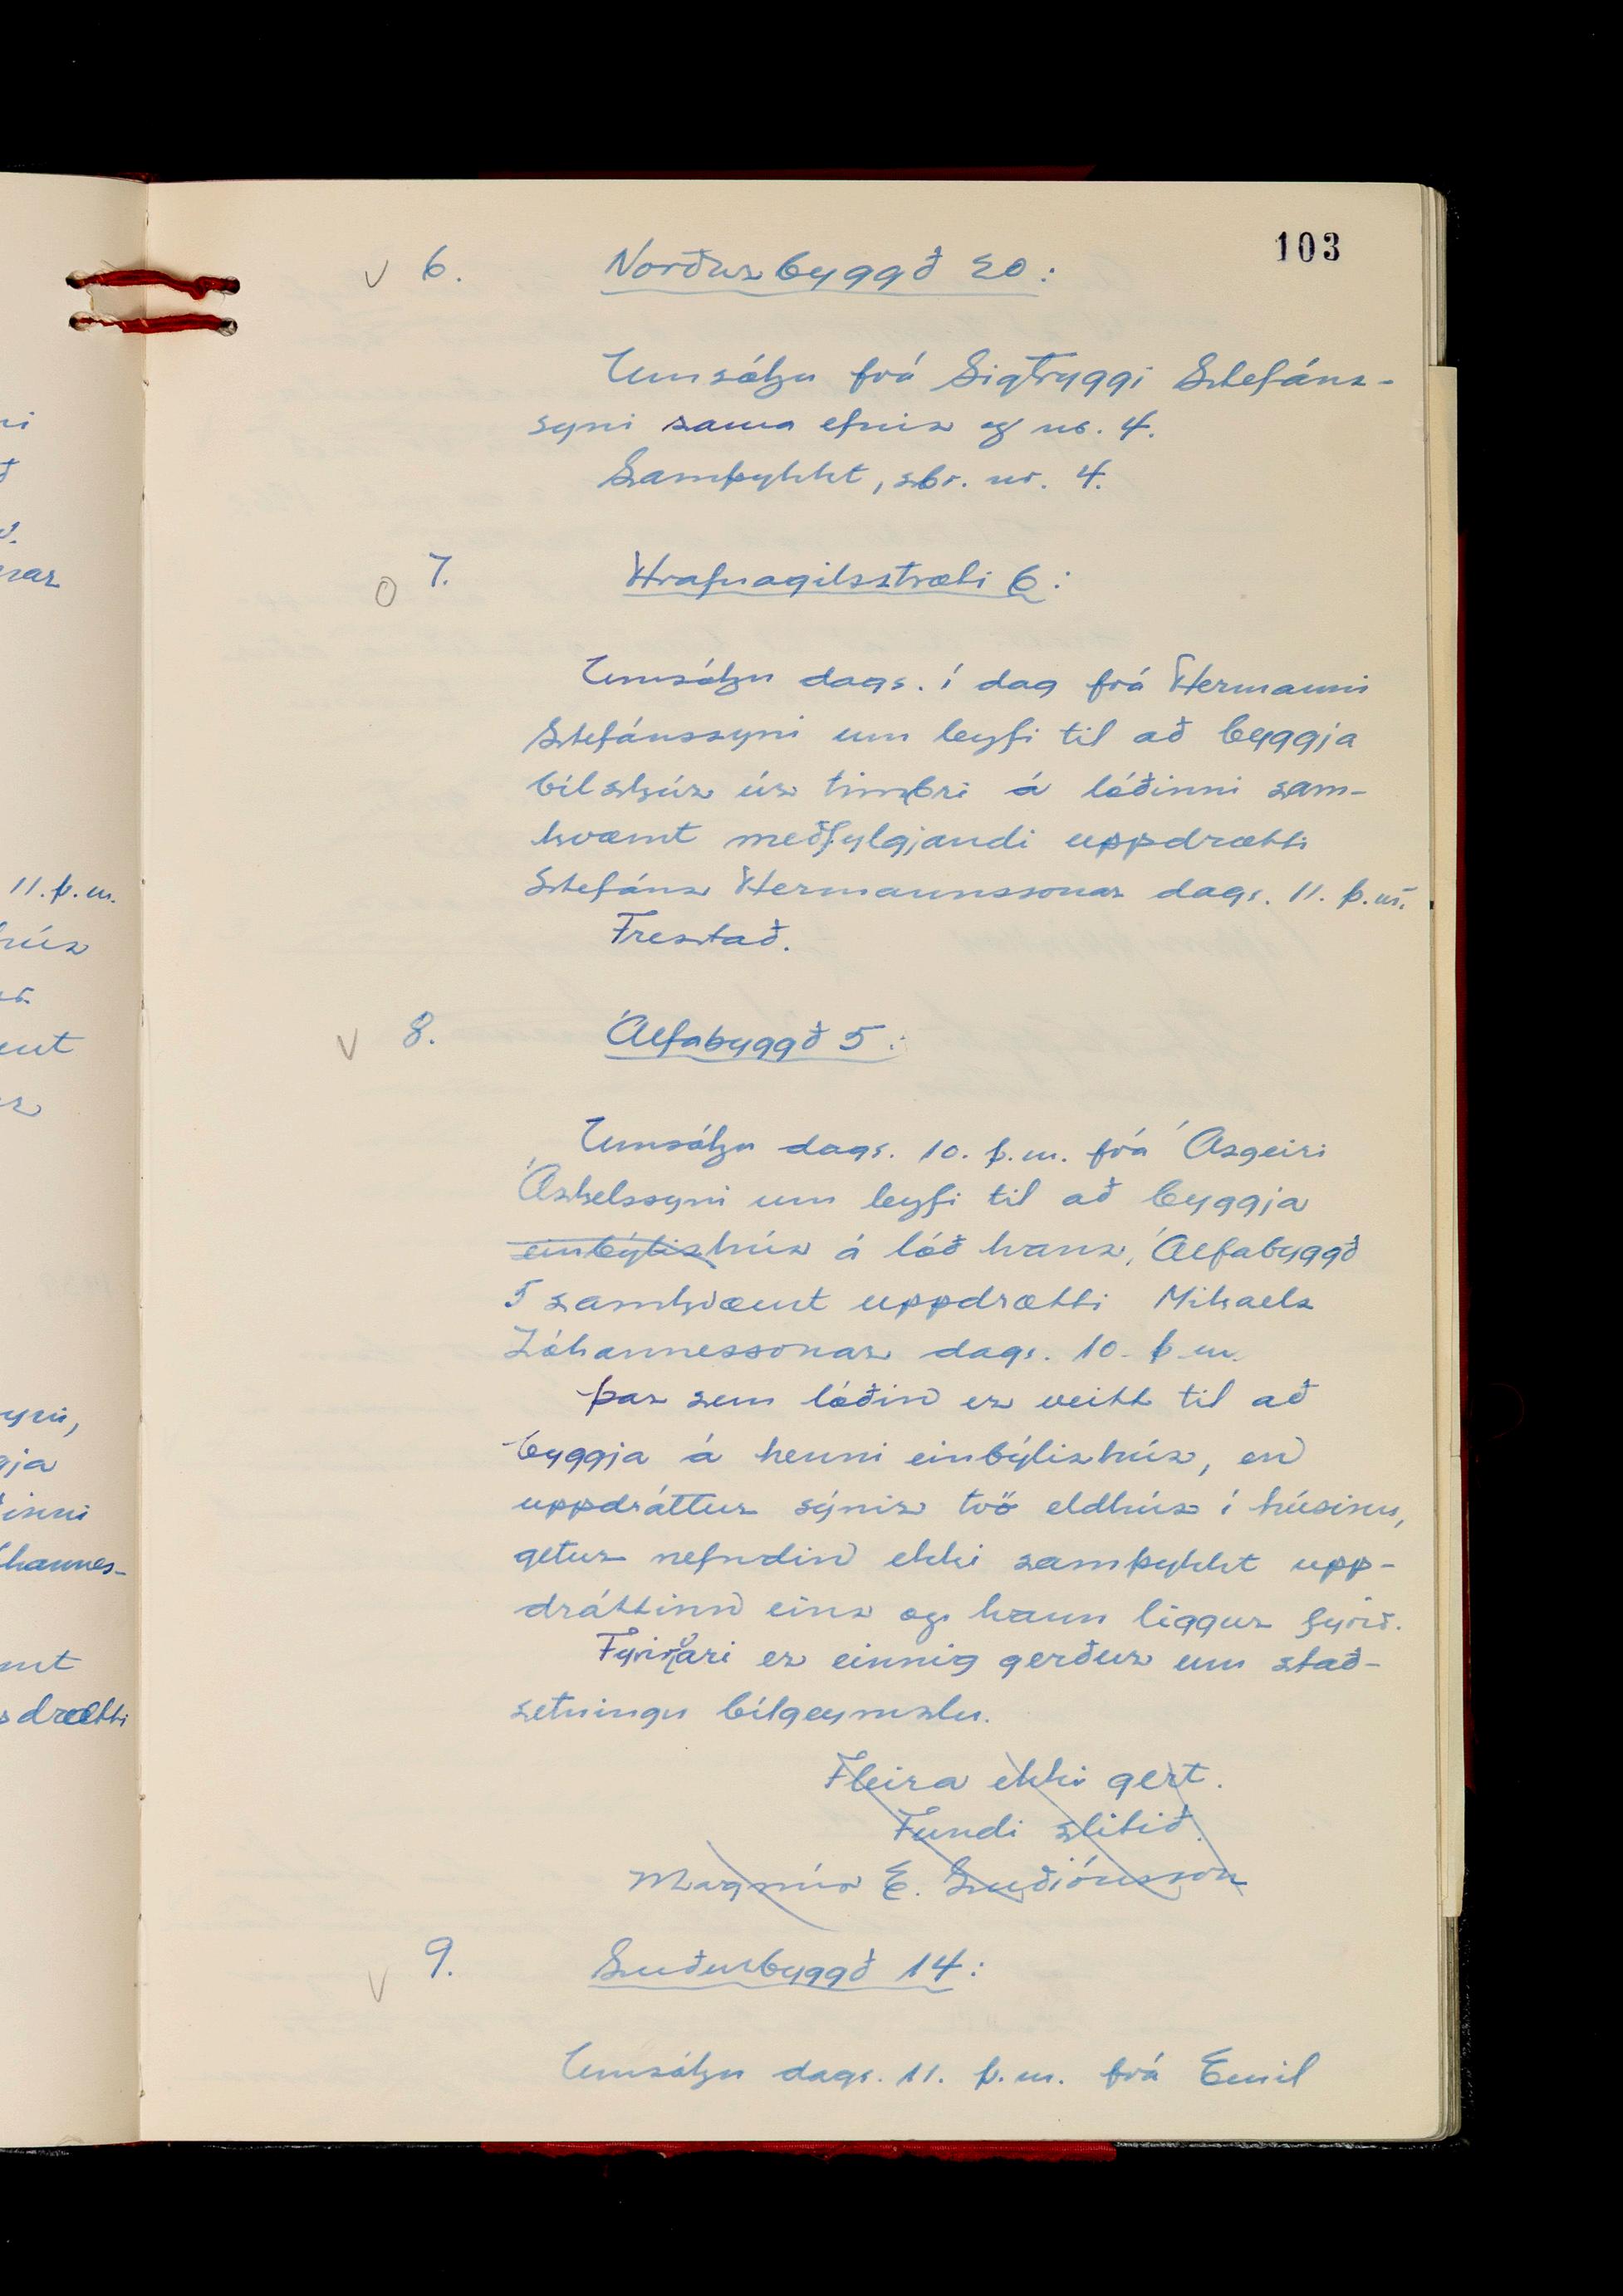 103
v 6. Norðurbyggð 20:
Umsókn frá Sigtryggi Stefáns-
syni sama efnis og nr. 4.
Samþykkt, sbr. nr. 4.
o 7. Hrafnagilsstræti 6:
Umsókn dags. í dag frá Hermanni
Stefánssyni um leyfi til að byggja
bílskúr úr timbri á lóðinni sam-
kvæmt meðfylgjandi uppdrætti
Stefáns Hermannssonar dags. 11. þ.m.
Frestað.
v 8. Álfabyggð 5:
Umsókn dags. 10. þ.m. frá Ásgeiri
Áskelssyni um leyfi til að byggja
einbýlishús á lóð hans, Álfabyggð
5 samkvæmt uppdrætti Mikaels
Jóhannessonar dags. 10. þ.m.
Þar sem lóðin er veitt til að
byggja á henni einbýlishús, en
uppdráttur sýnir tvö eldhús í húsinu,
getur nefndin ekki samþykkt upp-
dráttinn eins og hann liggur fyrir.
Fyrirvari er einnig gerður um stað-
setningu bílgeymslu.
Fleira ekki gert.
Fundi slitið.
Magnús E. Guðjónsson
v 9. Suðurbyggð 14:
Umsókn dags. 11. þ.m. frá Emil
ni
ð
nar
11. þ.m.
hús
syni,
gja
inni
hannes-
drætti